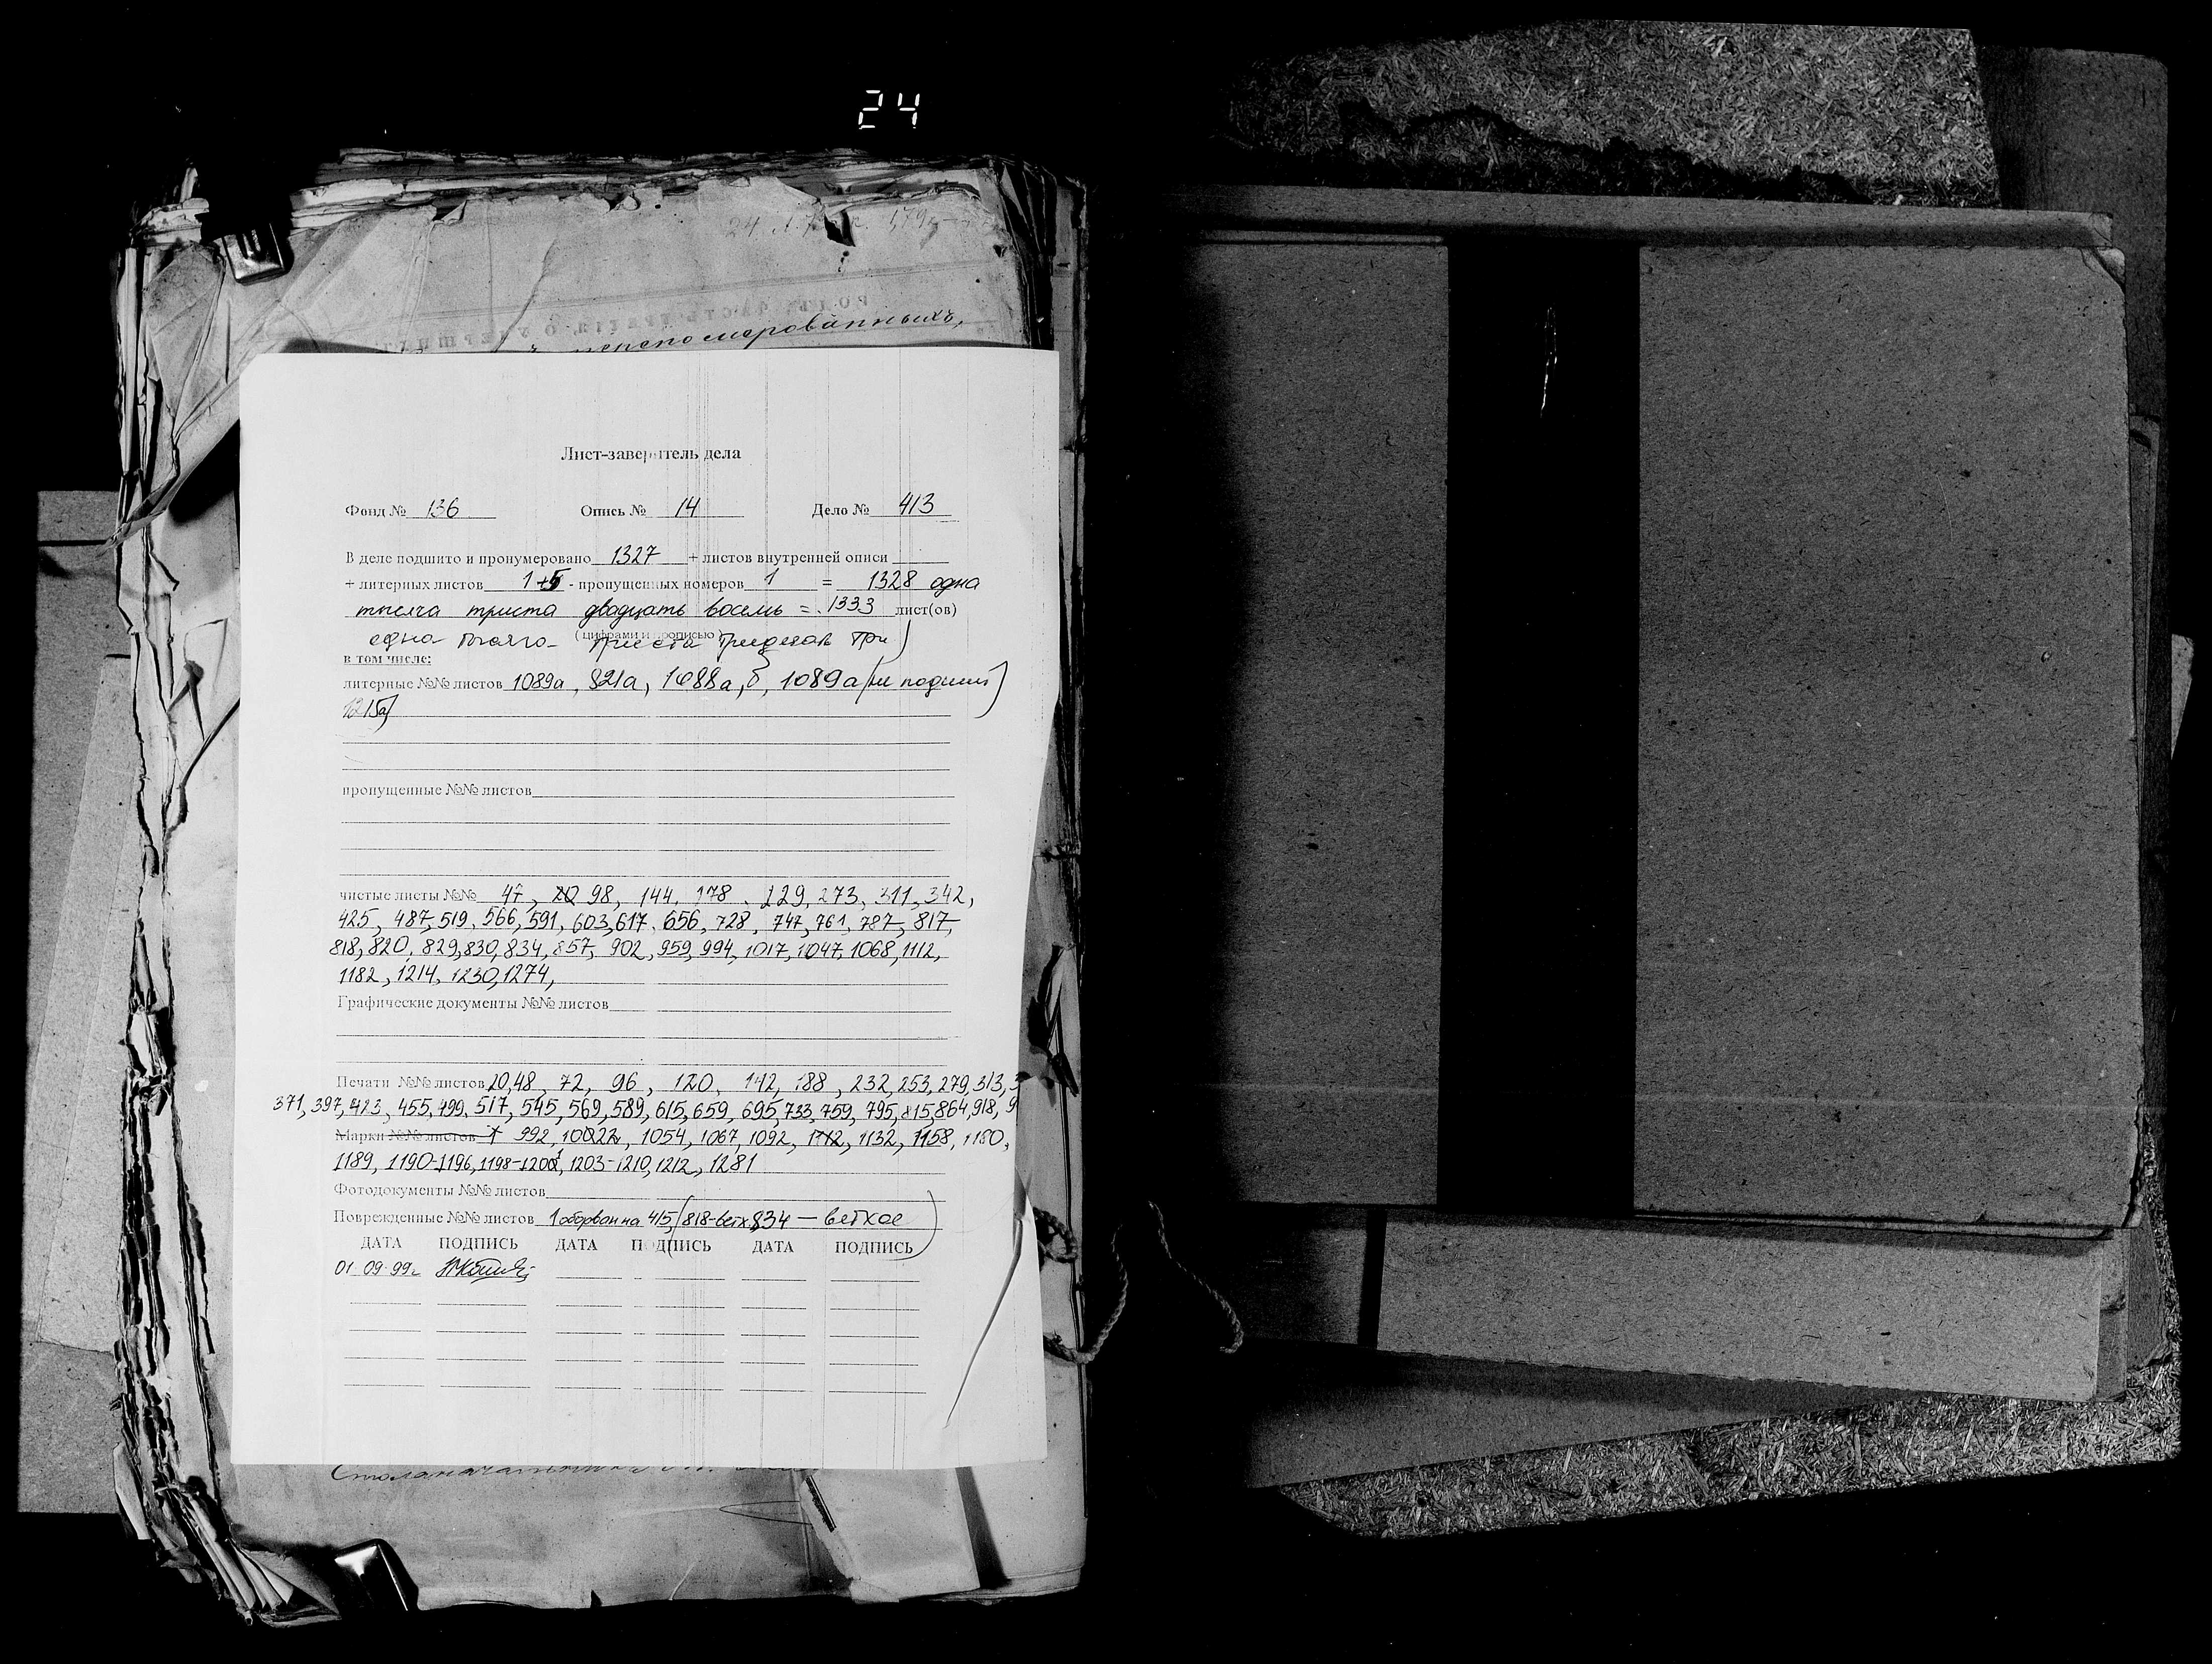 24
перепомерованныхъ,
Лист-заверитель дела
Фонд № 136 Опись № 14 Дело № 413
В деле подшито и пронумеровано 1327 + листов внутренней описи
+ литерных листов 1+5 - пропущенных номеров 1 = 1328 одна
тысяча триста двадцать восемь = 1333 лист(ов)
(цифрами и прописью)
одна тысяча триста тридцать три)
в том числе:
литерные №№ листов 1089а, 821а, 1088а, б, 1089а (не подшит)
1215а)
пропущенные №№ листов
чистые листы №№ 47, 98, 144, 178, 229, 273, 311, 342,
425, 487, 519, 566, 591, 603, 617, 656, 728, 747, 761, 787, 817,
818, 820, 829, 830, 834, 857, 902, 959, 994, 1017, 1047, 1068, 1112,
1182, 1214, 1230, 1274,
Графические документы №№ листов
Печати №№ листов 20, 48, 72, 96, 120, 142, 188, 232, 253, 279, 313, 3
371, 397, 423, 455, 499, 517, 545, 569, 589, 615, 659, 695, 733, 759, 795, 815, 864, 918, 9
Марки №№ листов 992, 1022, 1054, 1067, 1092, 1112, 1132, 1158, 1180,
1189, 1190-1196, 1198-1201, 1203-1210, 1212, 1281
Фотодокументы №№ листов
Поврежденные №№ листов 1 оборван на 415, (818-ветх, 834 — ветхое)
ДАТА ПОДПИСЬ ДАТА ПОДПИСЬ ДАТА ПОДПИСЬ
01.09.99г.